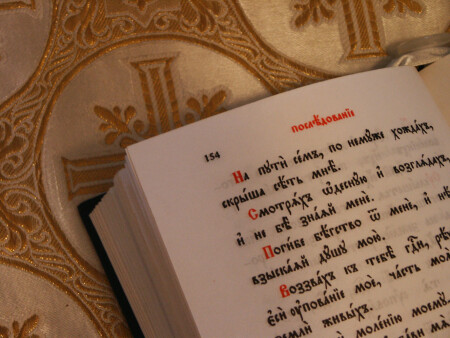 154 Послѣдованїе
На пꙋтѝ се́мъ, по немꙋ́же хожда́хъ,
скры́ша сѣ́ть мнѣ̀.
Смотрѧ́хъ ѡ҆деснꙋ́ю и҆ возглѧ́дахъ,
и҆ не бѣ̀ зна́ѧй менѐ.
Поги́бе бѣ́гство ѿ менє̀, и҆ нѣ́
взыска́ѧй дꙋ́шꙋ мою̀.
Воззва́хъ къ тебѣ̀ гдⷭ҇и, рѣ́
є҆сѝ ᲂу҆пова́нїе моѐ, ча́сть моѧ̀
землѝ живы́хъ.
моле́нїю моемꙋ̀